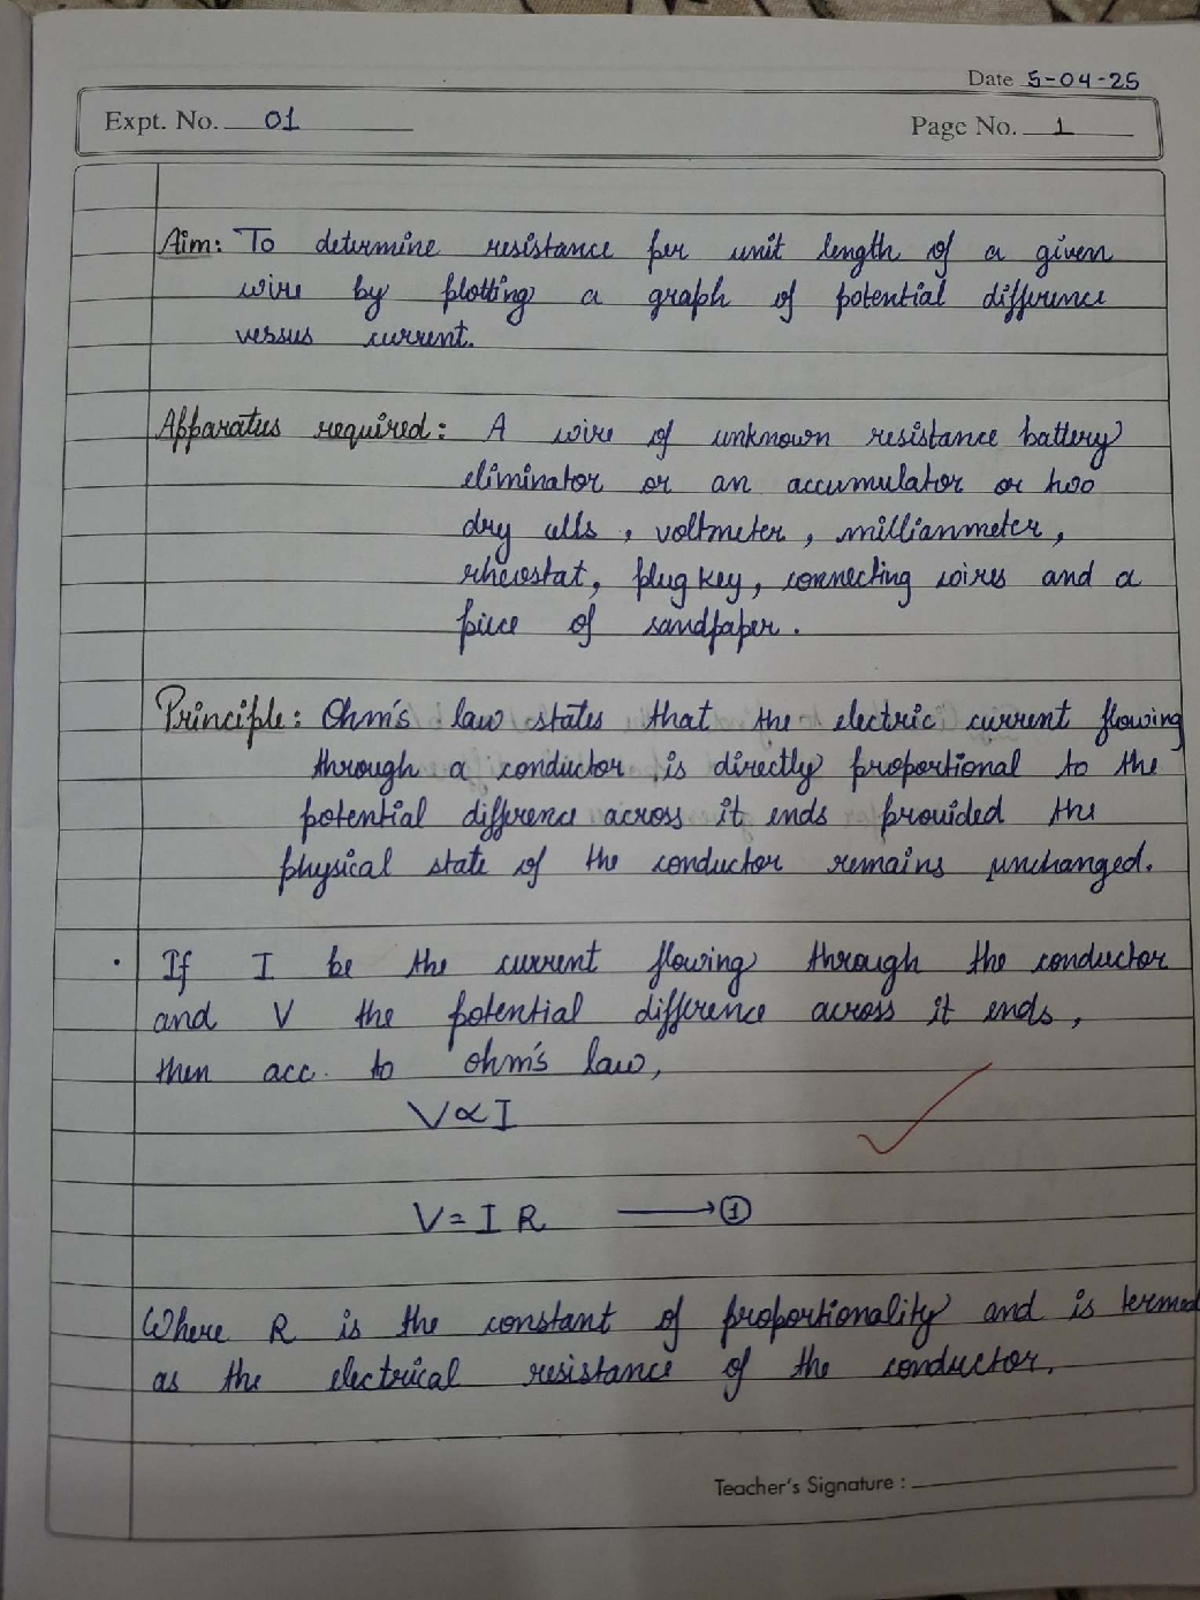 Date 5-04-25
Expt. No. 01
Page No. 1
Aim: To determine resistance per unit length of a given
wire by plotting a graph of potential difference
versus current.
Apparatus required: A wire of unknown resistance battery
eliminator or an accumulator or two
dry cells, voltmeter, millianmeter,
rheostat, plug key, connecting wires and a
piece of sandpaper.
Principle: Ohm's law states that the electric current flowing
through a conductor is directly proportional to the
potential difference across it ends provided the
physical state of the conductor remains unchanged.
· If I be the current flowing through the conductor
and V the potential difference across it ends,
then acc. to ohm's law,
V∝I
V = I R ⟶ ①
Where R is the constant of proportionality and is termed
as the electrical resistance of the conductor.
Teacher's Signature :